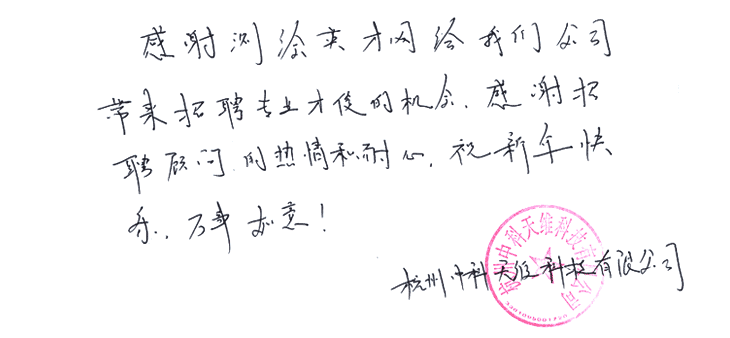 感谢测绘英才网给我们公司
带来招聘专业才俊的机会.感谢招
聘顾问的热情和耐心,祝新年快
乐,万事如意!
杭州中科天维科技有限公司
杭州中科天维科技有限公司